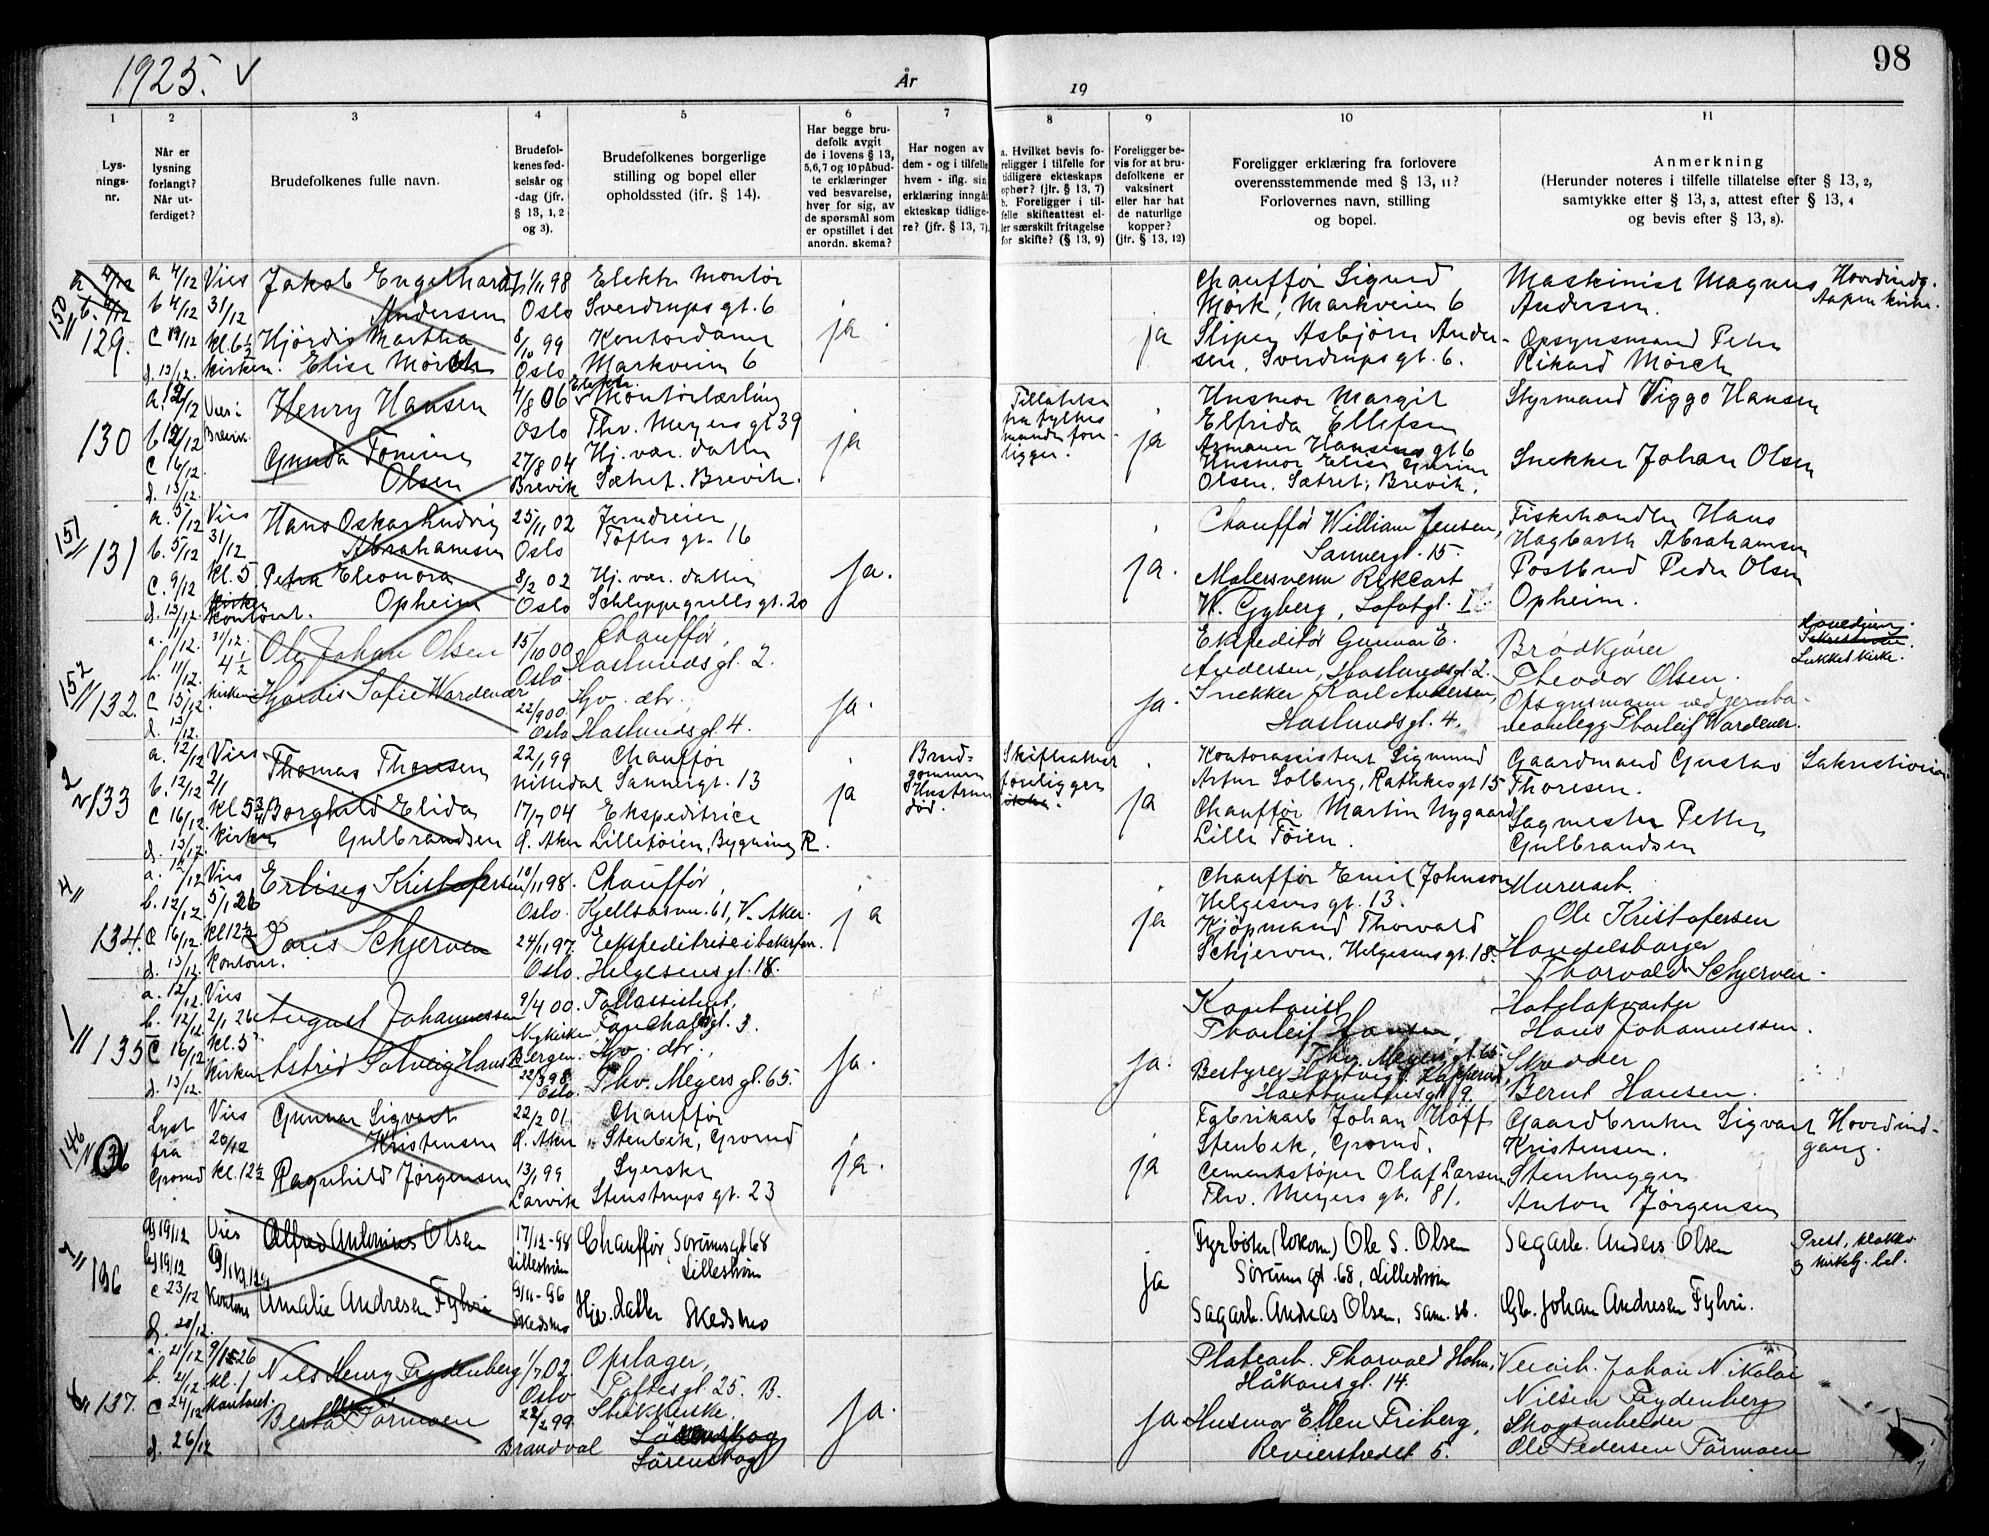 1925. v
År
19
98
1
2
3
4
5
6
7
8
9
10
11
Lys-
nings-
nr.
Når er
lysning
forlangt?
Når ut-
ferdiget?
Brudefolkenes fulle navn.
Brudefol-
kenes fød-
selsår og
-dag (jfr.
§ 13, 1, 2
og 3).
Brudefolkenes borgerlige
stilling og bopel eller
opholdssted (jfr. § 14).
Har begge bru-
defolk avgit
de i lovens § 13,
5,6,7 og 10 påbud-
te erklæringer
ved besvarelse,
hver for sig, av
de spørsmål som
er opstillet i det
anordn. skema?
Har nogen av
dem - og i tilfelle
hvem - iflg. sin
erklæring inngåt
ekteskap tidlige-
re? (jfr. § 13, 7).
a. Hvilket bevis fo-
religger i tilfelle for
tidligere ekteskaps
ophør? (jfr. § 13, 7)
b. Foreligger i til-
felle skifteattest el-
ler særskilt fritagelse
for skifte? (§ 13, 9)
Foreligger be-
vis for at bru-
defolkene er
vaksinert
eller har hat
de naturlige
kopper?
(jfr. § 13, 12)
Foreligger erklæring fra forlovere
overensstemmende med § 13, 11?
Forlovernes navn, stilling
og bopel.
Anmerkning
(Herunder noteres i tilfelle tillatelse efter § 13, 2,
samtykke efter § 13, 3, attest efter § 13, 4
og bevis efter § 13, 8).
150
129.
a 4/12
b 4/12
c 19/12
d. 13/12.
Vies
31/12
kl. 6 1/2
kirken.
Jakob Engelhardt
Andersen
Hjørdis Martha
Elise Mørch
1/11 98
Oslo
8/10 99
Oslo
Elektr. Montør
Sverdrups gt. 6
Kontordame
Markveien 6
ja.
ja
Chauffør Sigurd
Mørk, Markveien 6
Sliper Asbjørn Ander-
sen, Sverdrups gt. 6.
Maskinist Magnus
Andersen.
Opsynsmand Peter
Rikard Mørch
Hovedindg.
Aapen kirke.
130
c 16/12
d. 13/12.
Vies i
Brevik.
Henry Hansen
Gunda Tomine
Olsen
4/8 06
Oslo
27/8 04
Brevik
Elektr.
Montørlærling
Thv. Meyers gt 39
Hj. vær. datter
Sætret. Brevik.
ja
Tillatelse
fra fylkes
manden fore-
ligger.
ja
Husmor Margit
Elfrida Ellefsen
Armauer Hansens gt 6
Husmor Elise Gurine
Olsen. Sætret, Brevik.
Styrmand Viggo Hansen
Snekker Johan Olsen
151
131
a. 5/12
b. 5/12
c. 9/12
d. 13/12.
Vies
31/12
kl. 5
kirken
kontoret.
Hans Oskar Ludvig
Abrahamsen
Petra Eleonora
Opheim
25/11 02
Oslo
8/2 02
Oslo
Jerndreier
Toftes gt. 16
Hj. vær. datter
Schleppegrells gt. 20
ja.
ja.
Chauffør William Jensen,
Sannergt. 15.
Malersvenn Rikcart
W. Gyberg, Lofotgt. I.
Fiskehandler Hans
Hagbarth Abrahamsen
Postbud Peder Olsen
Opheim.
152
132.
a. 11/12.
b. 11/12.
c 15/12
d. 13/12.
31/12.
4 1/2
kirken
Ole Johan Olsen
Hjørdis Sofie Wardenær
15/10 00
Oslo.
22/9 00.
Oslo
Chauffør,
Haslunds gt. 2.
Hjv. dtr.,
Haslunds gt. 4.
ja.
ja.
Ekspeditør Gunnar E.
Andersen, Haslundsgt. 2.
Snekker Karl Andersen,
Haslundsgt. 4.
Brødkjører
Theodor Olsen.
Opsynsmann ved jernba-
neanlegg Thorleif Wardenær.
Lukket kirke.
133
a. 12/12
b. 12/12
c 16/12.
d. 13/12.
Vies
2/1
kl 5 3/4
kirken
Thomas Thoresen
Borghild Elida
Gulbrandsen
22/1 99
Nittedal
17/7 04
Ø. Aker
Chauffør
Sannergt. 13
Ekspeditrice
Lilletøien, Bygning R.
ja
Brud-
gommen
Hustruen
død.
Skifteattest
foreligger
ja
Kontorassistent Sigmund
Artur Solberg, Rathkes gt 15
Chauffør Martin Nygaard
Lille Tøien.
Gaardmand Gustav
Thoresen.
Sagmester Petter
Gulbrandsen
Sakristiveien
4
134.
a. 12/12
b. 12/12.
c 16/12.
d. 13/12.
Vies
5/1 26
kl 12 1/2
kontoret.
Erling Kristofersen
Doris Schjerven
10/11 98.
Oslo.
24/1 97.
Oslo.
Chauffør,
Kjellsåsvn. 61, V. Aker.
Ekspeditrise i bakerforr.
Helgesens gt. 18.
ja
ja
Chauffør Emil Johnson
Helgesens gt. 13.
Kjøpmand Thorvald
Schjerven, Helgesens gt. 18.
Murerarb.
Ole Kristofersen
Handelsborger
Thorvald Schjerven.
1
135
a. 12/12.
b. 12/12.
c 16/12
d. 13/12.
Vies
2/1 26
kl. 5
Kirken
August Johannessen
Astrid Solveig Hansen
9/4 00.
Nykirken
Bergen.
22/3 98
Oslo.
Tollassistent,
Fauchaldsgt. 3.
Hjv. dtr.,
Thv. Meyersgt. 65.
ja.
ja.
Kontorist
Thorleif Hansen,
Thv. Meyersgt. 65.
Hotelopvarter
Hans Johannessen.
Skredder
Bernt Hansen.
146
136
Lyst
fra
Grorud
Vies
20/12
kl. 12 1/2
Gunnar Sigvart
Kristensen
Ragnhild Jørgensen
22/2 01
Ø. Aker
13/1 99
Larvik
Chauffør
Stenbek, Grorud
Syerske
Stenstrups gt. 23
ja.
ja
Fabrikarb Johan Hoff
Stenbek, Grorud.
Cementstøper Olaf Larsen
Thv. Meyers gt. 81.
Gaardbruker Sigvart
Kristensen.
Stenhugger
Anton Jørgensen
Hovedind-
gang.
136
a) 19/12
b) 19/12
c 23/12
Vies
Kontoret
Alfred Antonius Olsen
Amalie Andresen Fyhri
17/12-98
Lillestrøm
9/11-96
Skedsmo
Chauffør, Sørumsgt 68
Lillestrøm
Hjv. datter
Skedsmo
ja
Fyrbøter (lokom.) Ole S. Olsen
Sørumsgt. 68, Lillestrøm
Sagarb. Andreas Olsen, sam. st.
Sagarb. Anders Olsen
Gb. Johan Andresen Fyhri.
Prest, klokker
og kirkelg. bet.
137.
a. 21/12
b. 21/12
c 24/12
d. 26/12
9/1 26
kl. 1
Kontoret.
Nils Henry Frydenberg
Berta Tørmoen
1/7 02.
Oslo
22/2 99.
Brandval
Opslager,
Toftesgt. 25. B.
Strikkerske,
Lørenskog
ja.
ja
Platearb. Thorvald Holm,
Håkonsgt. 14.
Husmor Ellen Friberg,
Revierstredet 5.
Veiarb. Johan Nikolai
Nilsen Frydenberg
Skogsarbeider
Ole Pedersen Tørmoen